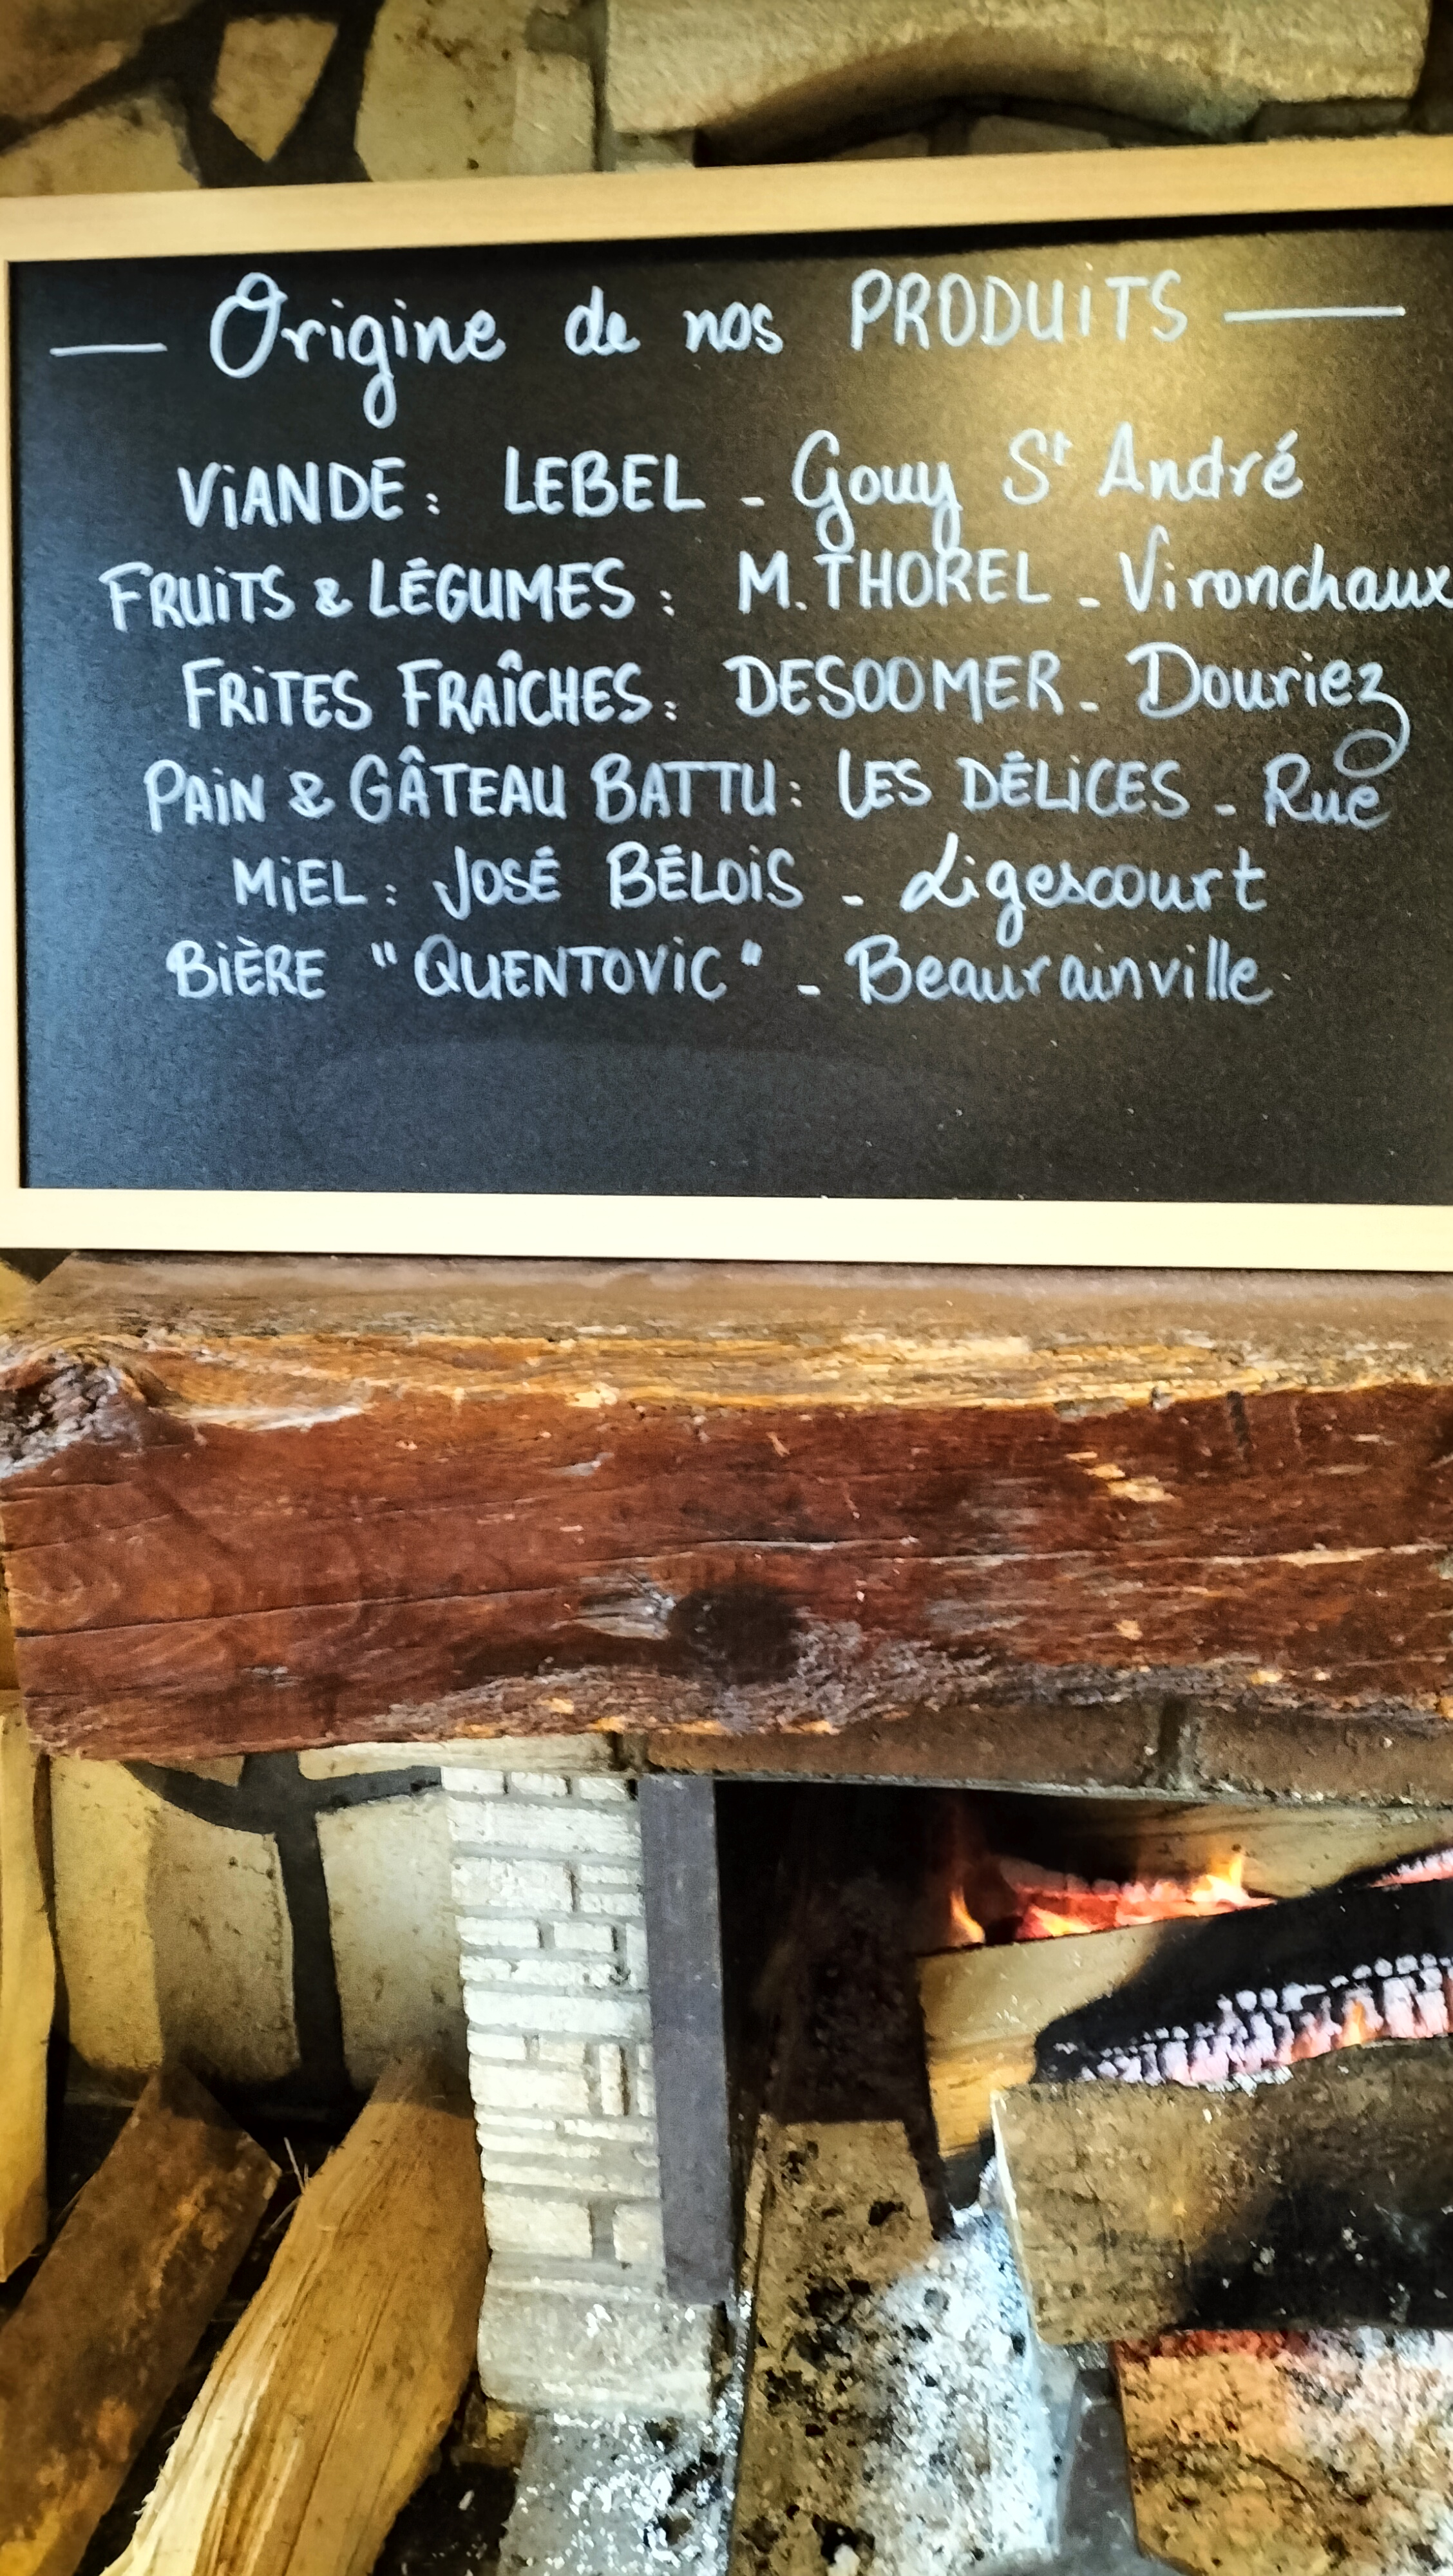 — Origine de nos PRODUITS —
VIANDE : LEBEL - Gouy St André
FRUITS & LÉGUMES : M. THOREL - Vironchaux
FRITES FRAÎCHES : DESOOMER - Douriez
PAIN & GÂTEAU BATTU : LES DÉLICES - Rue
MIEL : JOSÉ BÉLOIS - Ligescourt
BIÈRE "QUENTOVIC" - Beaurainville